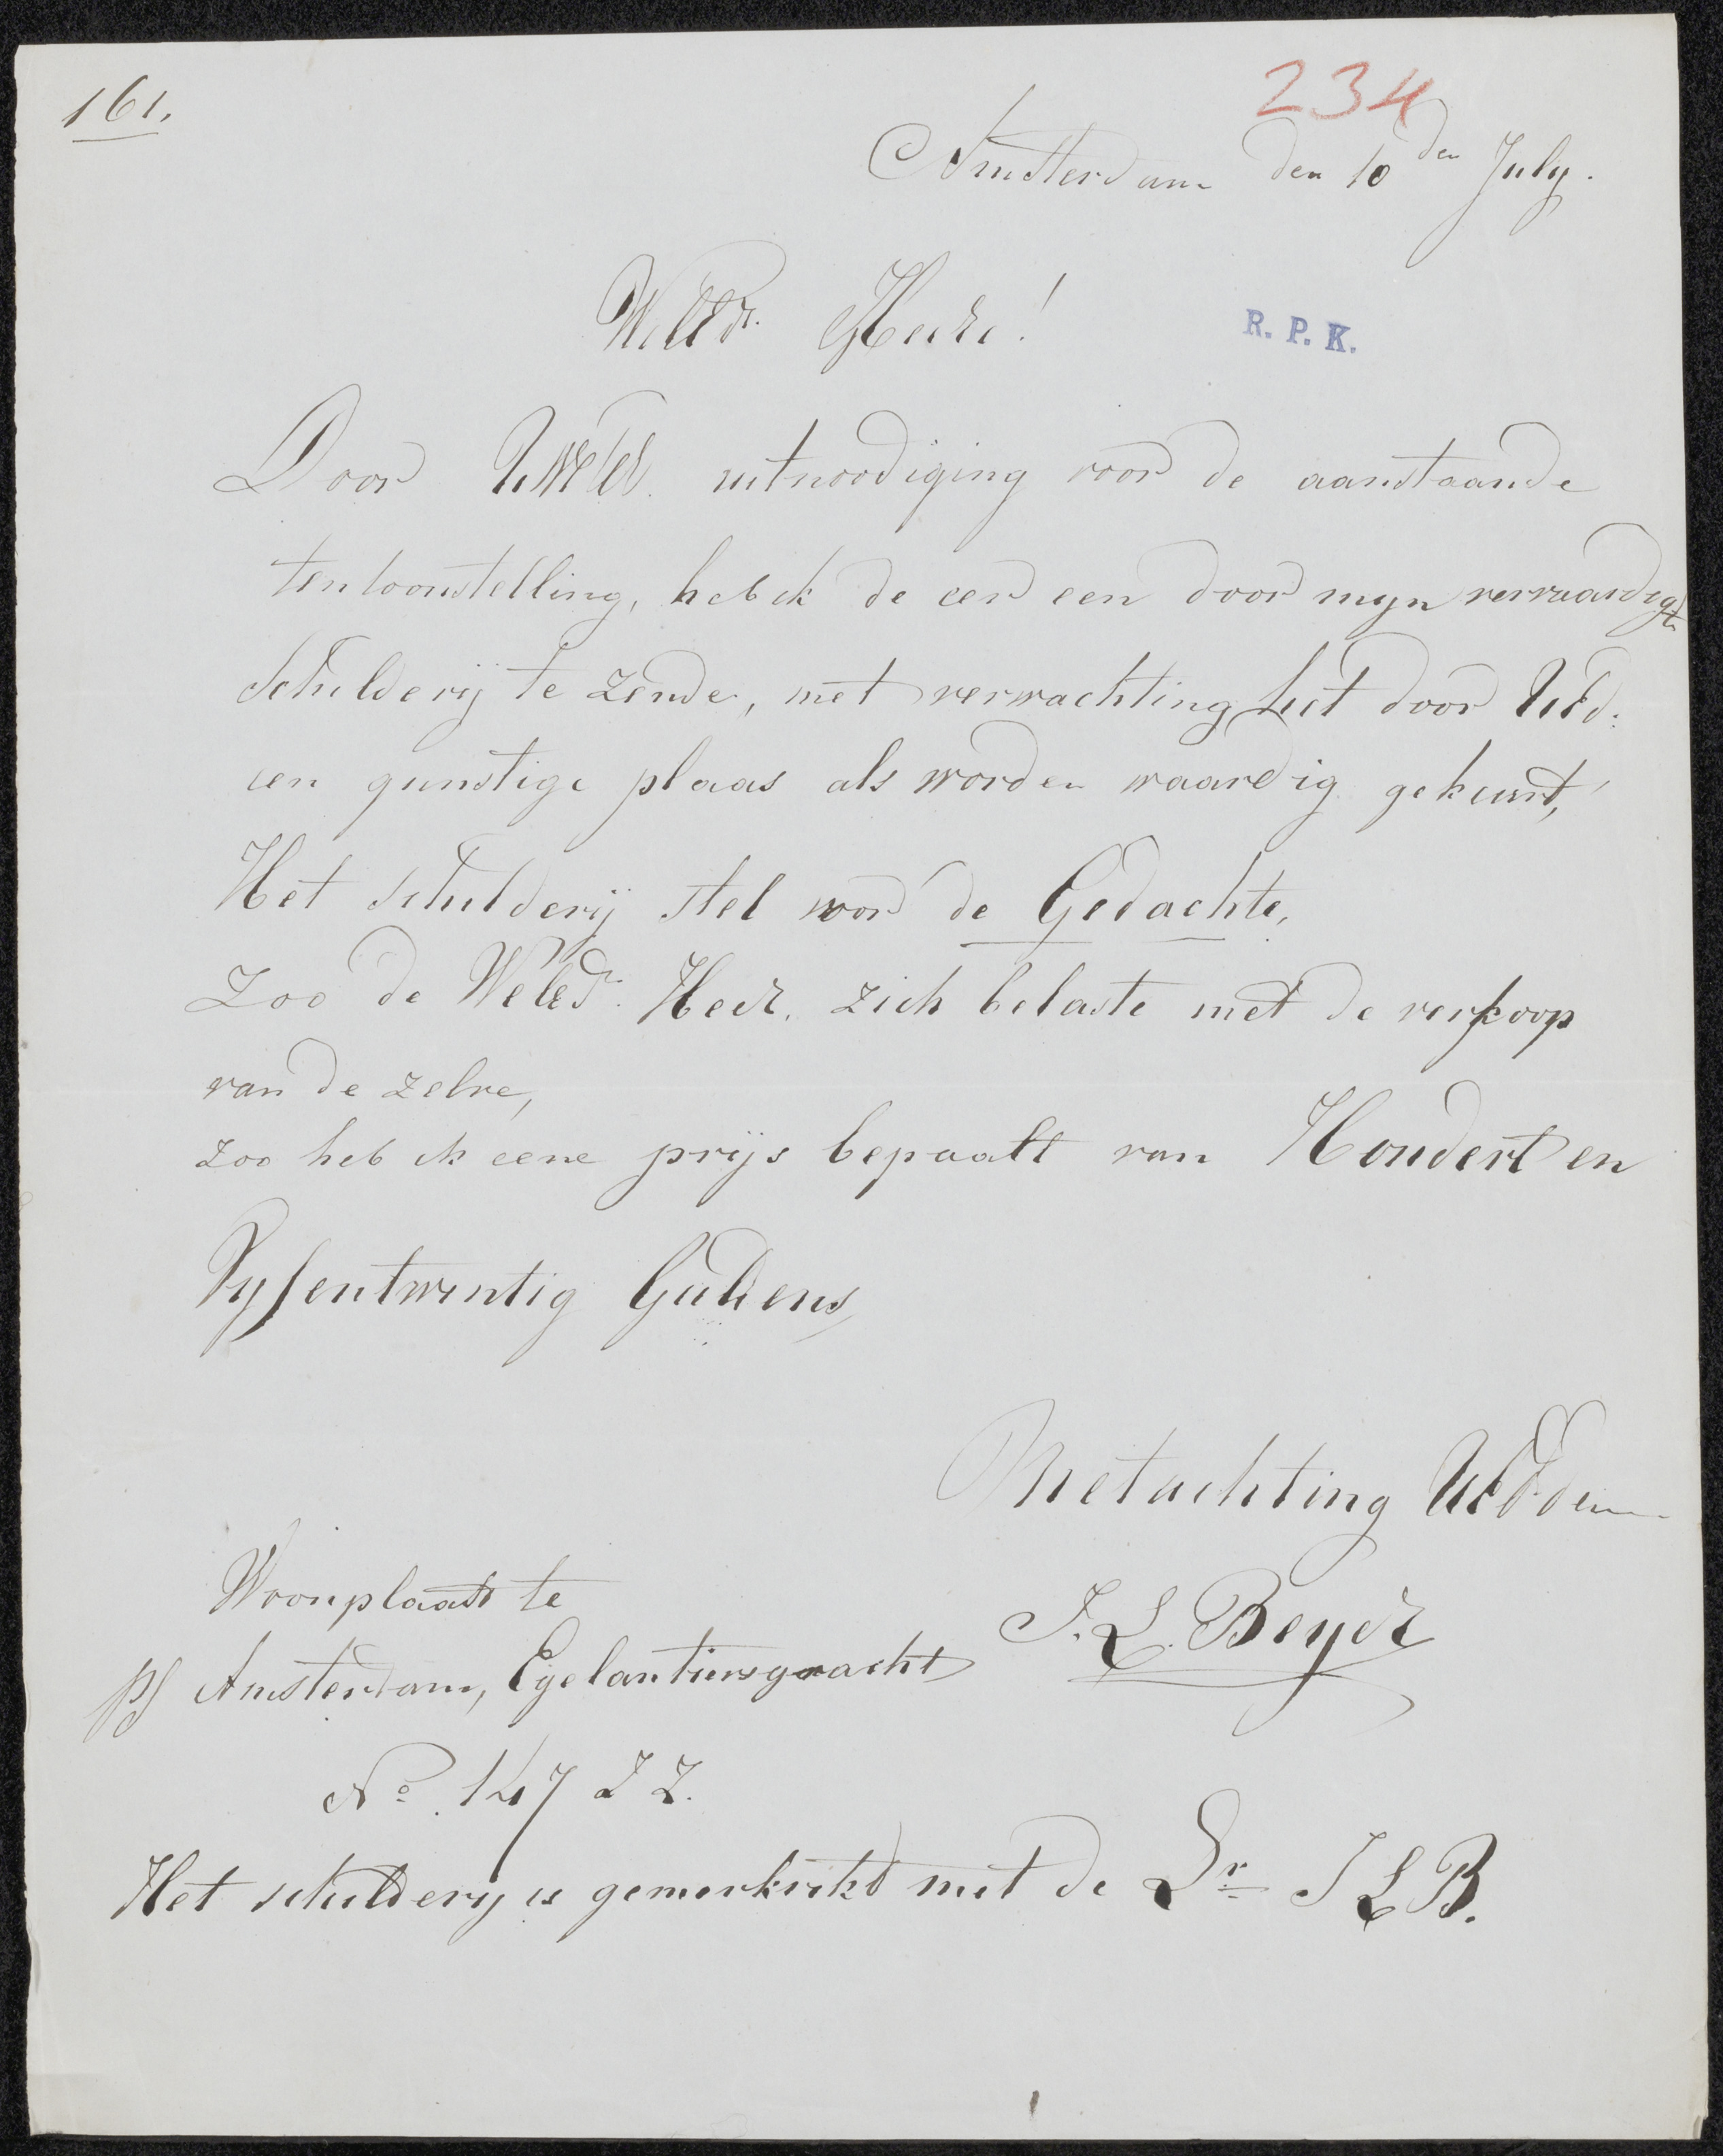 161.
234
Amsterdam den 10 den July.
WelEdr. Heere!
R. P. K.
Door UWelEd. uitnoodiging voor de aanstaande
tentoonstelling, heb ik de eer een door myn vervaardigt
schilderij te zende, met verwachting het door UEd.
een gunstige plaas als worden waardig gekeurt,
Het schilderij stel voor de Gedachte,
Zoo de WelEdr. Heer. zich belaste met de verkoop
van de zelve,
zoo heb ik eene prijs bepaalt van Hondert en
Vyfentwintig Guldens
Met achting UEd. den
J. L. Beyer
Woonplaats te
PS Amsterdam, Egelantiersgracht
No. 147 ZZ.
Het schildery is gemerkt met de Lr. J L B.